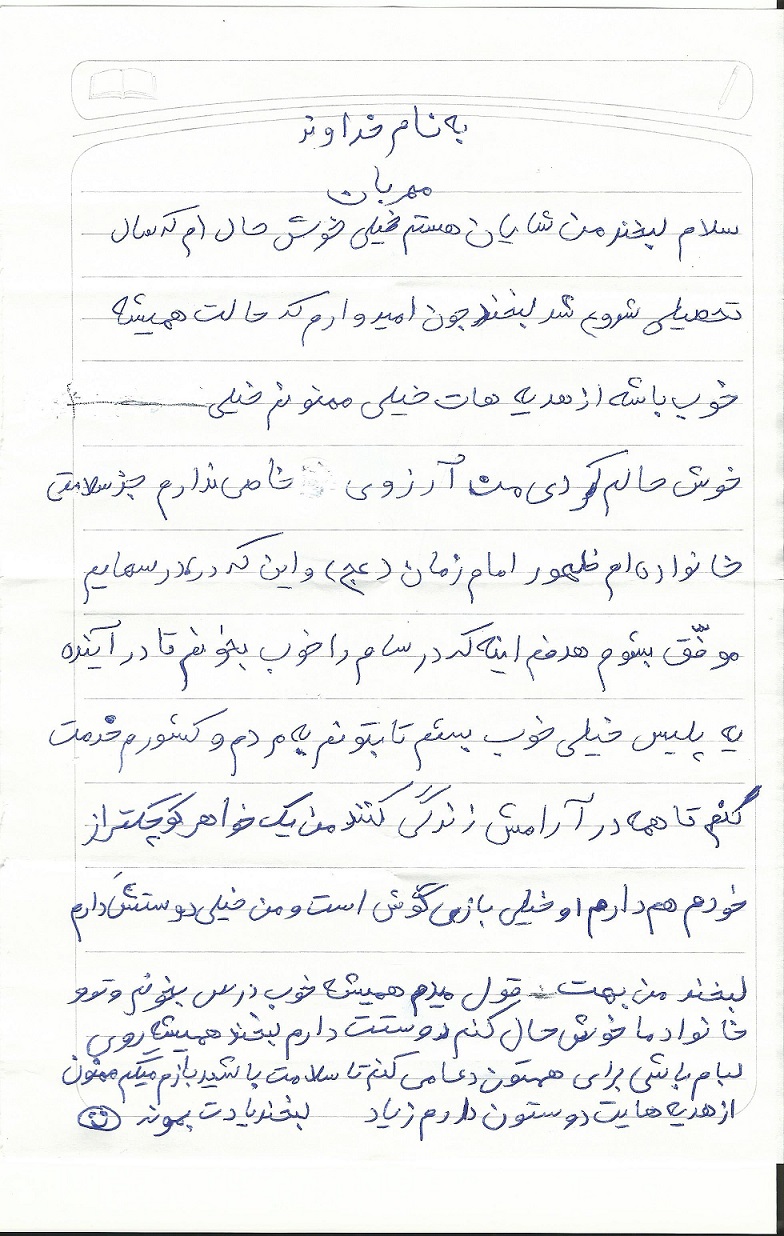 به نام خداوند
مهربان
سلام لبخند من شایان هستم خیلی خوش حال ام که سال
تحصیلی شروع شد لبخند جون امیدوارم که حالت همیشه
خوب باشه از هدیه هات خیلی ممنونم خیلی
خوش حالم کردی من آرزوی خاصی ندارم جز سلامتی
خانواده ام ظهور امام زمان (عج) و این که در درسهایم
موفّق بشوم هدفم اینه که درسام را خوب بخونم تا در آینده
یه پلیس خیلی خوب بشم تا بتونم به مردم و کشورم خدمت
کنم تا همه در آرامش زندگی کنند من یک خواهر کوچکتر از
خودم هم دارم او خیلی بازی گوش است و من خیلی دوستش دارم
لبخند من بهت قول میدم همیشه خوب درس بخونم و تو و
خانوادما خوش حال کنم دوستت دارم لبخند همیشه روی
لبام باشی برای همتون دعا می کنم تا سلامت باشید بازم میگم ممنون
از هدیه هایت دوستون دارم زیاد لبخند یادت بمونه